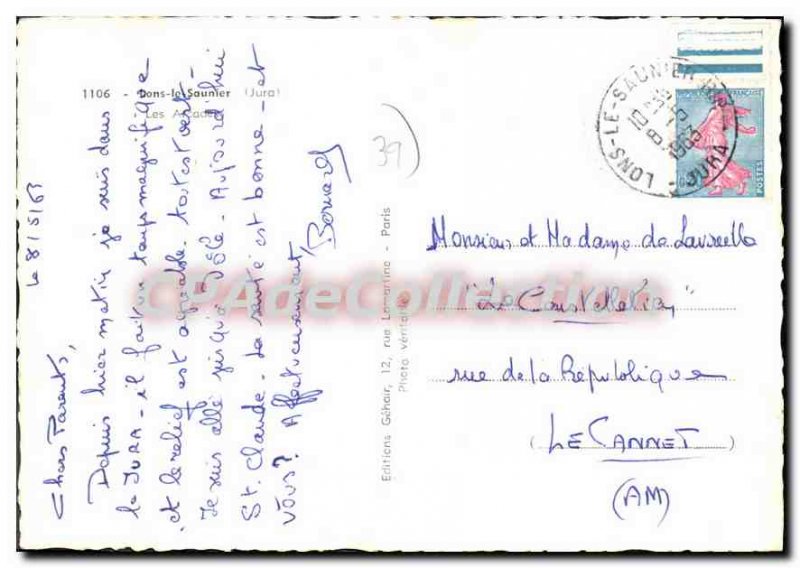 1106 - Lons-le-Saunier (Jura)
Les Arcades
le 8/5/63
Chers Parents,
Depuis hier matin je suis dans
le JURA - il fait un temps magnifique
et le relief est agréable. tout est vert -
Je suis allé jusqu'à Dôle - Aujourd'hui
St. Claude - La santé est bonne - et
vous? Affectueusement
Bernard
39
Editions Géhair, 12, rue Lamartine - Paris
Photo véritable
LONS-LE-SAUNIER RP
10 H 45
8 - 5
1963
JURA
FRANÇAISE
POSTES
Monsieur et Madame de
"Le Constellation"
rue de la République
LE CANNET
(AM)
CPAdeCollection